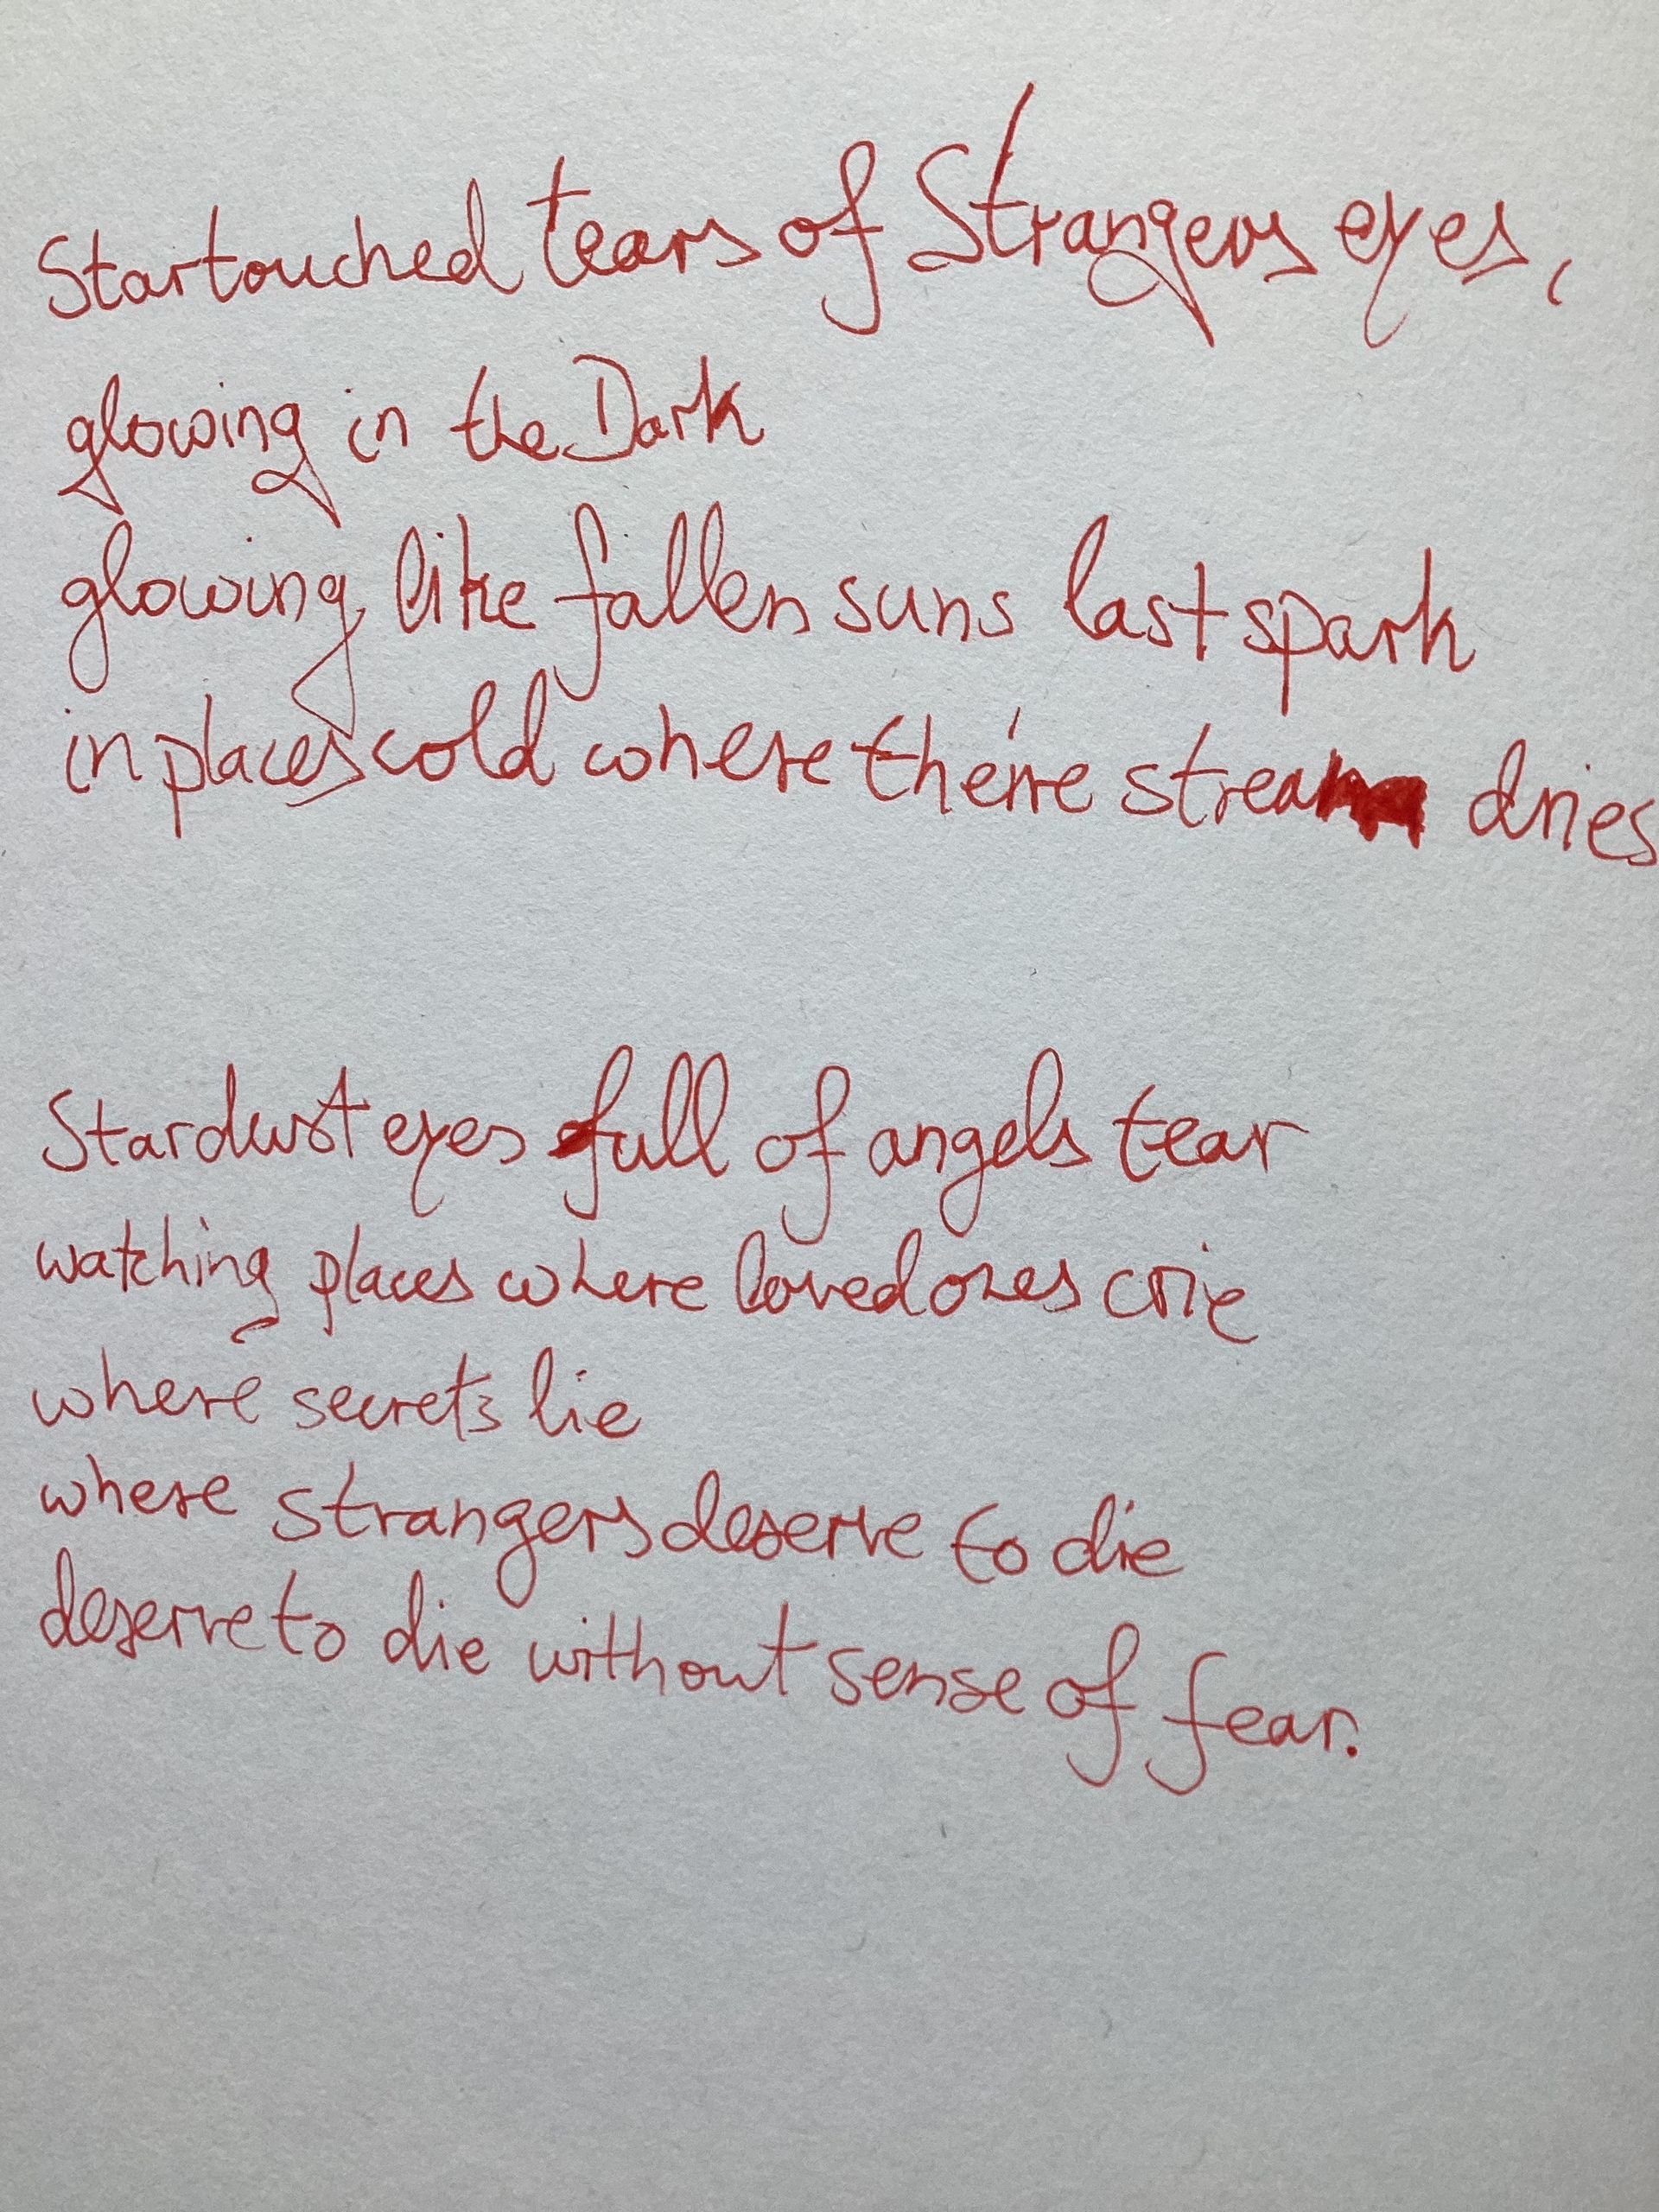 Startouched tears of Strangers eyes,
glowing in the Dark
glowing like fallen suns last spark
in places cold where the're stream dries
Stardust eyes full of angels tear
watching places where loved ones crie
where secrets lie
where strangers deserve to die
deserve to die without sense of fear.